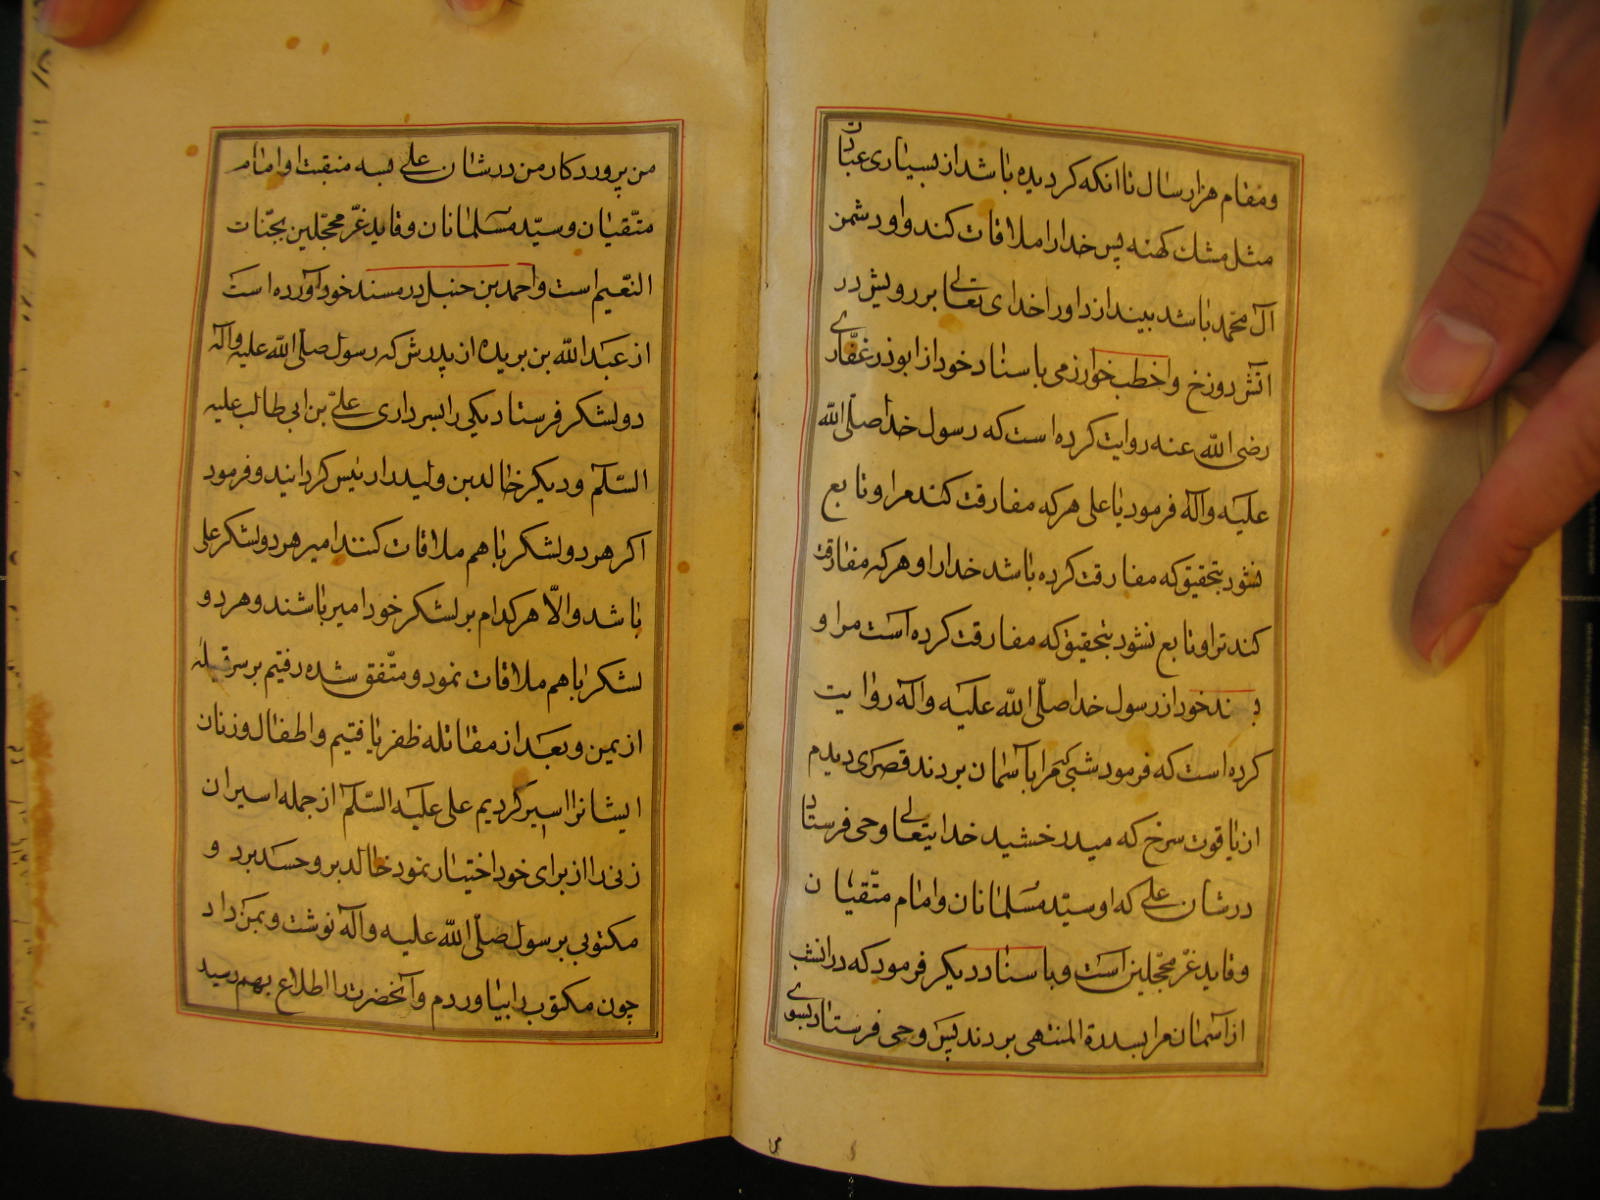 ومقام هزار سال تا انکه کردیده باشد از بسیاری عبادت
مثل مشك کهنه پس خدا را ملاقات کند و او دشمن
آل محمّد باشد بیندازد او را خدای تعالی بر رویش در
اتش دوزخ واخطب خوارزمی باسناد خود از ابوذر غفّاری
رضی الله عنه روایت کرده است که رسول خدا صلّی الله
علیه وآله فرمود یا علی هرکه مفارقت کند مرا و تابع
نشود بتحقیق که مفارقت کرده باشد خدا را و هرکه مفارقت
کند ترا و تابع نشود بتحقیق که مفارقت کرده است مرا و
خود از رسول خدا صلّی الله علیه وآله روایت
کرده است که فرمود شبی که مرا بآسمان بردند قصری دیدم
از یاقوت سرخ که میدرخشید خدایتعالی وحی فرستاد
در شان علی که او سیّد مسلمانان و امام متّقیان
وقاید غرّ محجّلین است و باسناد دیکر فرمود که در انشب
از آسمان مرا بسدرة المنتهی بردند پس وحی فرستاد بسوی
من پروردکار من در شان علی بسه منقبت او امام
متّقیان وسیّد مسلمانان وقاید غرّ محجّلین بجنّات
النّعیم است واحمد بن حنبل در مسند خود آورده است
از عبد الله بن بریده از پدرش که رسول صلّی الله علیه وآله
دو لشکر فرستاد یکی را بسرداری علیّ بن ابی طالب علیه
السّلام ودیکر خالد بن ولید را رئیس کردانید و فرمود
اکر هر دو لشکر باهم ملاقات کنند امیر هر دو لشکر علی
باشد والّا هرکدام بر لشکر خود امیر باشند وهر دو
لشکر باهم ملاقات نمود و متّفق شده رفتیم بر سر قبیله
از یمن وبعد از مقاتله ظفر یافتیم واطفال وزنان
ایشانرا اسیر کردیم علی علیه السّلام از جمله اسیران
زنی را از برای خود اختیار نمود خالد برو حسد برد و
مکتوبی بر سول صلّی الله علیه وآله نوشت وبمن داد
چون مکتوب را بیاوردم وآنحضرت را اطلاع بهم رسید